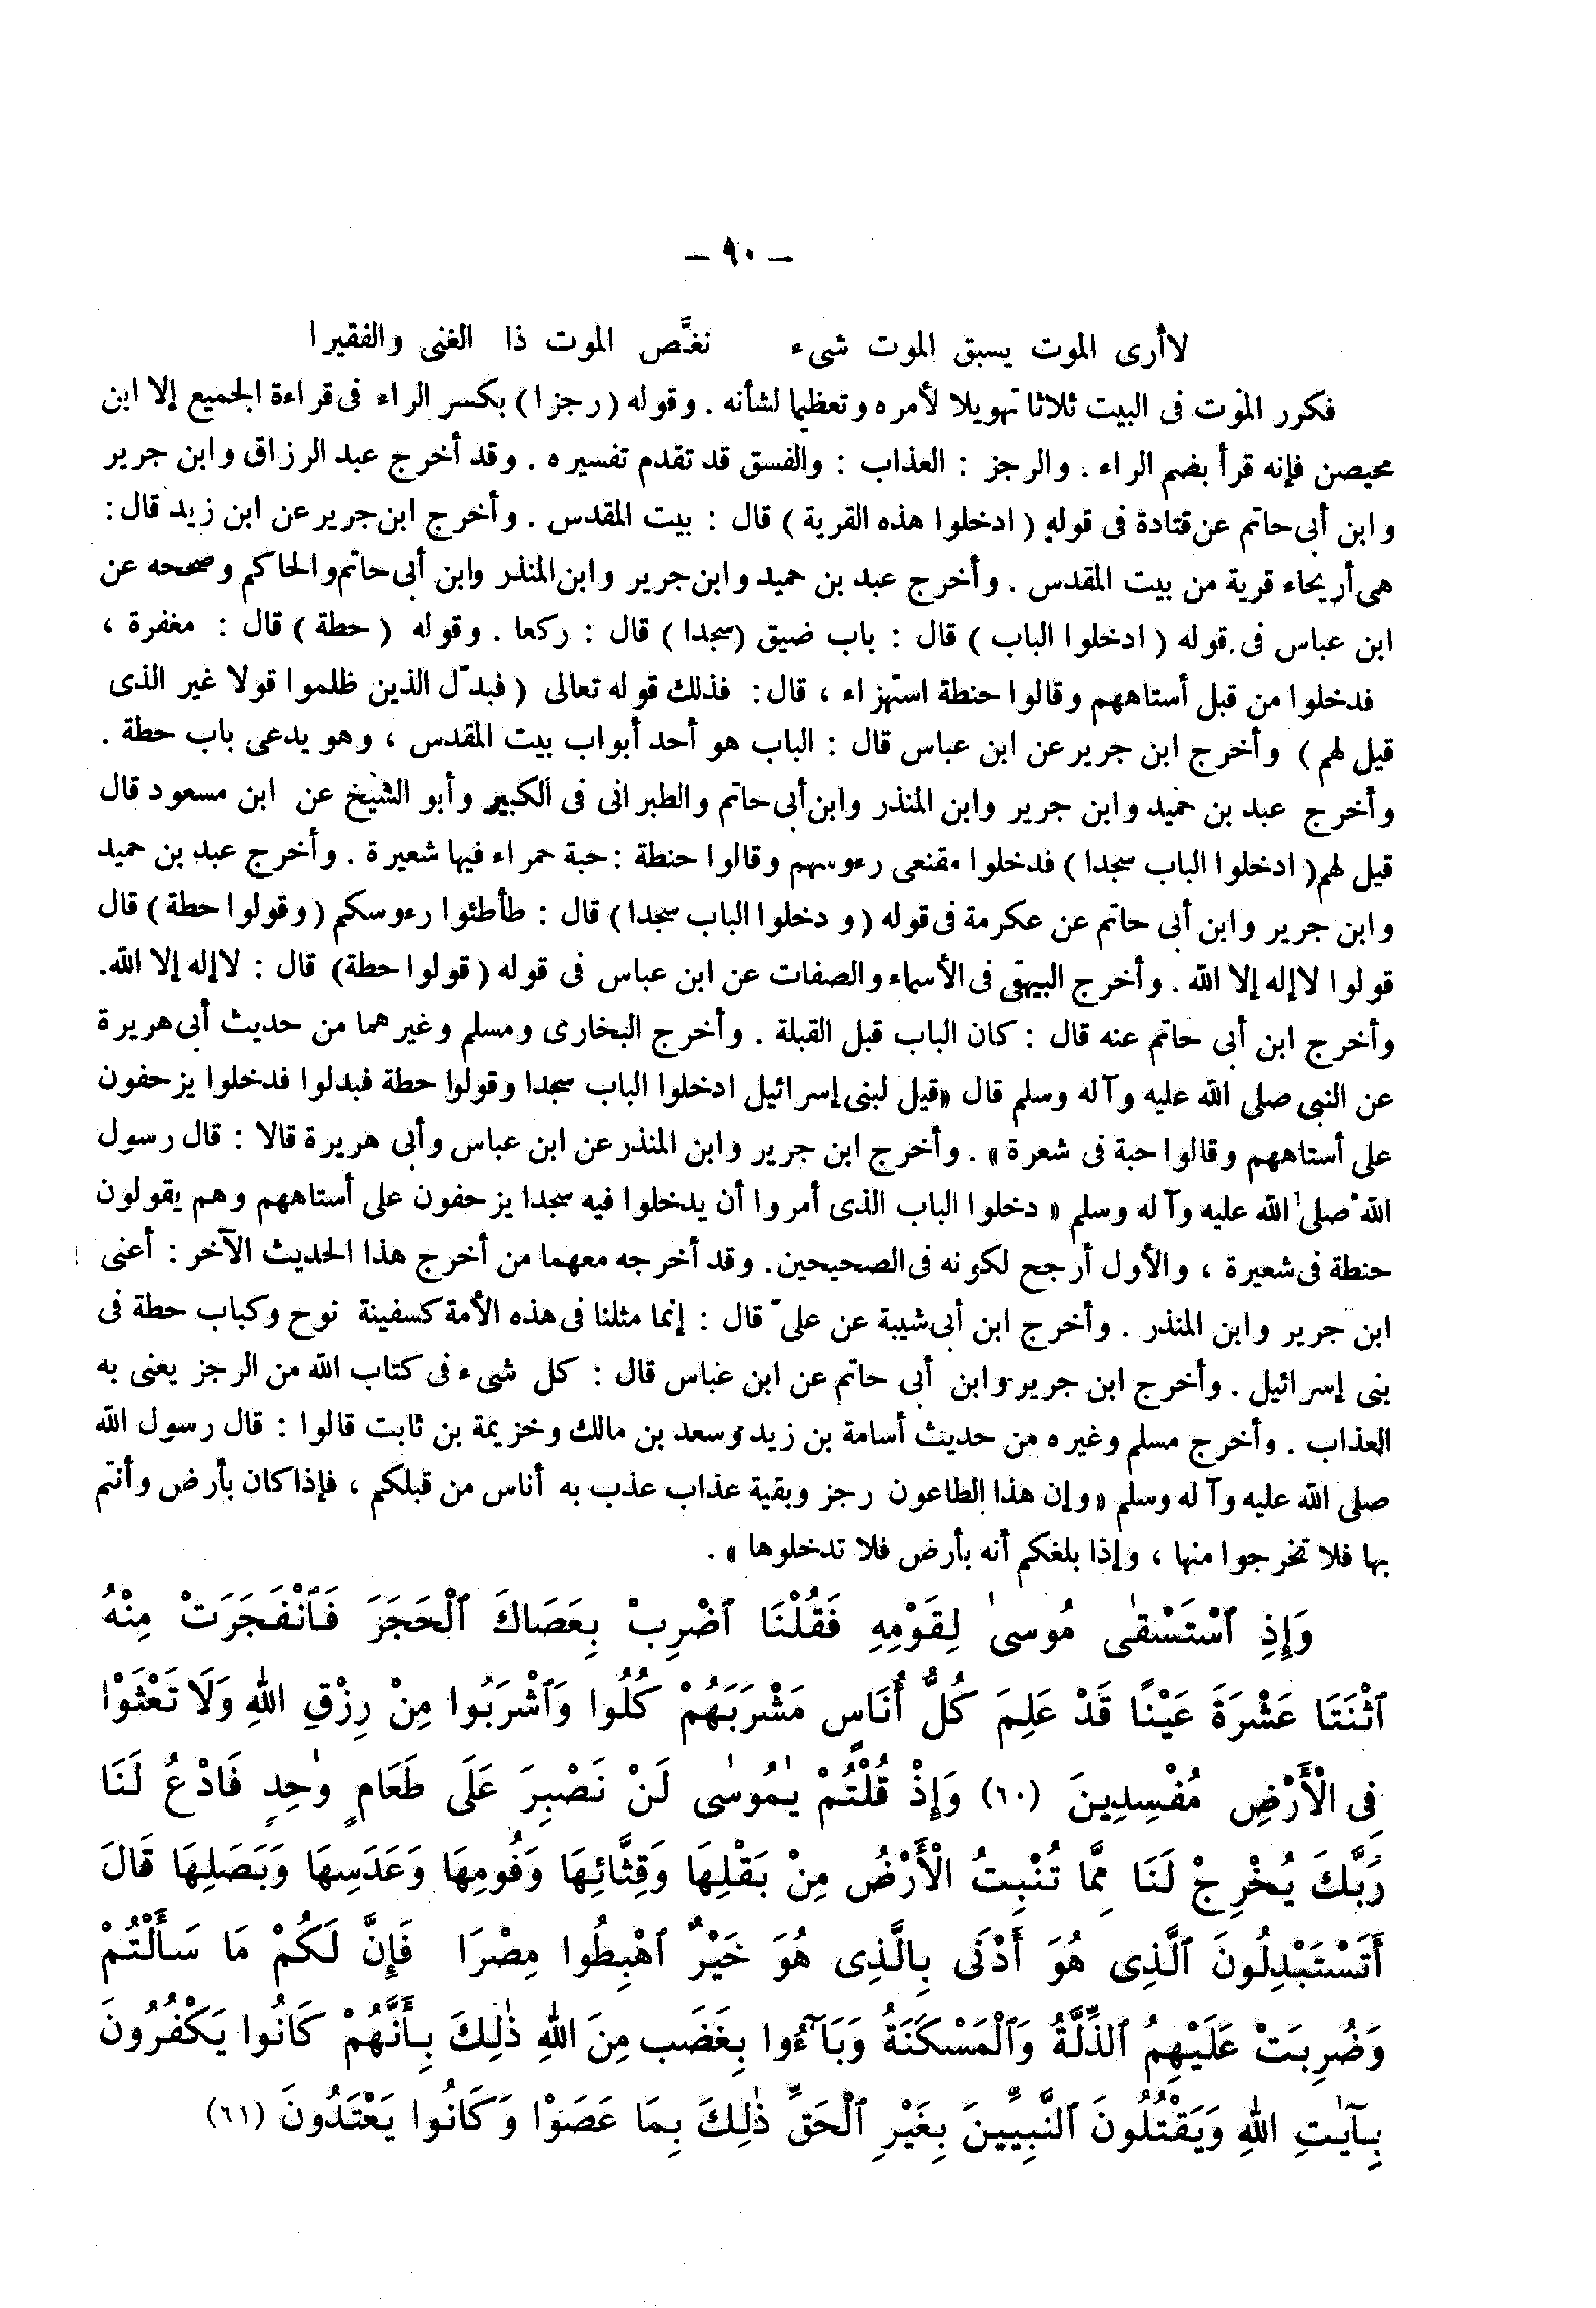 — ٩٠ —
لاأرى الموت يسبق الموت شىء نغَّص الموت ذا الغنى والفقيرا
فكرر الموت فى البيت ثلاثا تهويلا لأمره وتعظيما لشأنه . وقوله ( رجزا ) بكسر الراء فى قراءة الجميع إلا ابن
محيصن فإنه قرأ بضم الراء . والرجز : العذاب : والفسق قد تقدم تفسيره . وقد أخرج عبد الرزاق وابن جرير
وابن أبى حاتم عن قتادة فى قوله ( ادخلوا هذه القرية ) قال : بيت المقدس . وأخرج ابن جرير عن ابن زيد قال :
هى أريحاء قرية من بيت المقدس . وأخرج عبد بن حميد وابن جرير وابن المنذر وابن أبى حاتم والحاكم وصححه عن
ابن عباس فى قوله ( ادخلوا الباب ) قال : باب ضيق (سجدا ) قال : ركعا . وقوله ( حطة ) قال : مغفرة ،
فدخلوا من قبل أستاههم وقالوا حنطة استهزاء ، قال : فذلك قوله تعالى ( فبدّل الذين ظلموا قولا غير الذى
قيل لهم ) وأخرج ابن جرير عن ابن عباس قال : الباب هو أحد أبواب بيت المقدس ، وهو يدعى باب حطة .
وأخرج عبد بن حميد وابن جرير وابن المنذر وابن أبى حاتم والطبرانى فى الكبير وأبو الشيخ عن ابن مسعود قال
قيل لهم ( ادخلوا الباب سجدا ) فدخلوا مقنعى رءوسهم وقالوا حنطة : حبة حمراء فيها شعيرة . وأخرج عبد بن حميد
وابن جرير وابن أبى حاتم عن عكرمة فى قوله ( و دخلوا الباب سجدا ) قال : طأطئوا رءوسكم ( وقولوا حطة ) قال
قولوا لاإله إلا الله . وأخرج البيهقى فى الأسماء والصفات عن ابن عباس فى قوله ( قولوا حطة) قال : لاإله إلا الله.
وأخرج ابن أبى حاتم عنه قال : كان الباب قبل القبلة . وأخرج البخارى ومسلم وغيرهما من حديث أبى هريرة
عن النبى صلى الله عليه وآله وسلم قال «قيل لبنى إسرائيل ادخلوا الباب سجدا وقولوا حطة فبدلوا فدخلوا يزحفون
على أستاههم وقالوا حبة فى شعرة» . وأخرج ابن جرير وابن المنذر عن ابن عباس وأبى هريرة قالا : قال رسول
الله صلى الله عليه وآله وسلم « دخلوا الباب الذى أمروا أن يدخلوا فيه سجدا يزحفون على أستاههم وهم يقولون
حنطة فى شعيرة ، والأول أرجح لكونه فى الصحيحين . وقد أخرجه معهما من أخرج هذا الحديث الآخر : أعنى
ابن جرير وابن المنذر . وأخرج ابن أبى شيبة عن علىّ قال : إنما مثلنا فى هذه الأمة كسفينة نوح وكباب حطة فى
بنى إسرائيل . وأخرج ابن جرير وابن أبى حاتم عن ابن عباس قال : كل شىء فى كتاب الله من الرجز يعنى به
العذاب . وأخرج مسلم وغيره من حديث أسامة بن زيد وسعد بن مالك وخزيمة بن ثابت قالوا : قال رسول الله
صلى الله عليه وآله وسلم «وإن هذا الطاعون رجز وبقية عذاب عذب به أناس من قبلكم ، فإذا كان بأرض وأنتم
بها فلا تخرجوا منها ، وإذا بلغكم أنه بأرض فلا تدخلوها » .
وَإِذِ ٱسْتَسْقٰى مُوسىٰ لِقَوْمِهِ فَقُلْنَا ٱضْرِبْ بِعَصَاكَ ٱلْحَجَرَ فَٱنْفَجَرَتْ مِنْهُ
ٱثْنَتَا عَشْرَةَ عَيْنًا قَدْ عَلِمَ كُلُّ أُنَاسٍ مَشْرَبَهُمْ كُلُوا وَٱشْرَبُوا مِنْ رِزْقِ اللهِ وَلَا تَعْثَوْا
فِى الْأَرْضِ مُفْسِدِينَ (٦٠) وَإِذْ قُلْتُمْ يٰمُوسٰى لَنْ نَصْبِرَ عَلَى طَعَامٍ وٰحِدٍ فَادْعُ لَنَا
رَبَّكَ يُخْرِجْ لَنَا مِمَّا تُنْبِتُ الْأَرْضُ مِنْ بَقْلِهَا وَقِثَّائِهَا وَفُومِهَا وَعَدَسِهَا وَبَصَلِهَا قَالَ
أَتَسْتَبْدِلُونَ ٱلَّذِى هُوَ أَدْنَى بِالَّذِى هُوَ خَيْرٌ ٱهْبِطُوا مِصْرَا فَإِنَّ لَكُمْ مَا سَأَلْتُمْ
وَضُرِبَتْ عَلَيْهِمُ ٱلذِّلَّةُ وَٱلْمَسْكَنَةُ وَبَآءُوا بِغَضَبٍ مِنَ اللهِ ذٰلِكَ بِأَنَّهُمْ كَانُوا يَكْفُرُونَ
بِـآيٰتِ اللهِ وَيَقْتُلُونَ ٱلنَّبِيِّينَ بِغَيْرِ ٱلْحَقِّ ذٰلِكَ بِمَا عَصَوْا وَكَانُوا يَعْتَدُونَ (٦١)